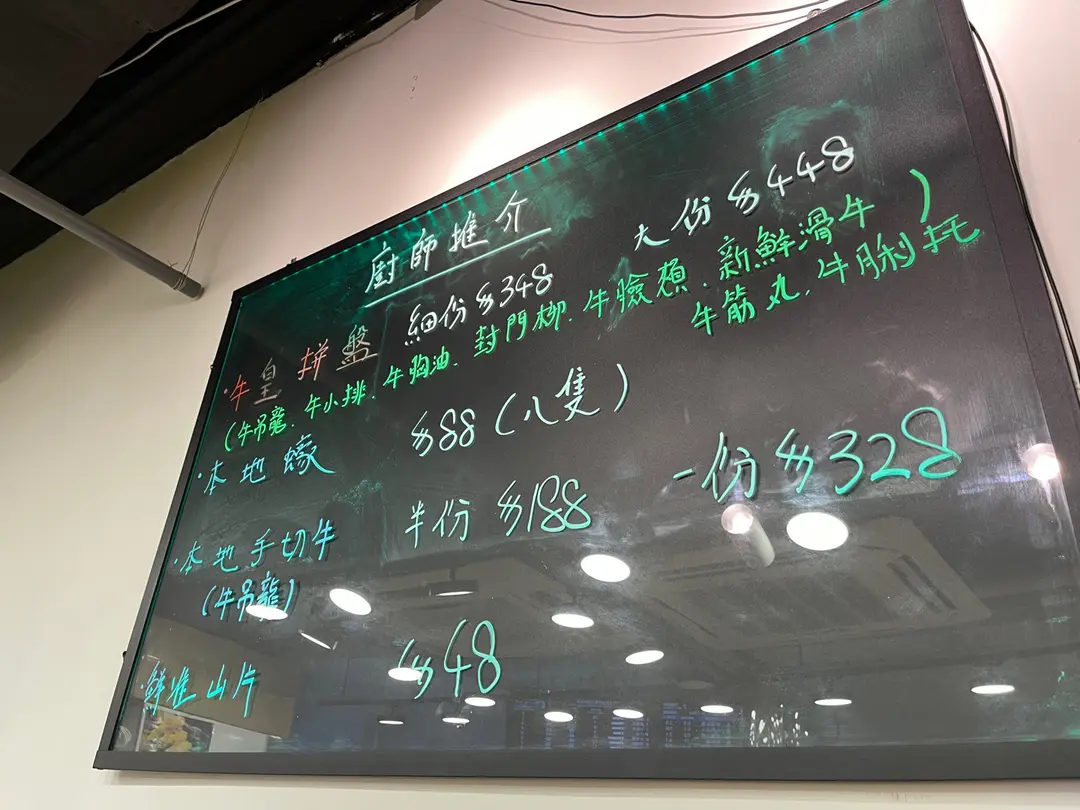 廚師推介
·牛皇拼盤 細份$348 大份$448
(牛吊龍、牛小排、牛胸油、封門柳、牛臉頰、新鮮滑牛
牛筋丸、牛脷托)
·本地蠔 $88(八隻)
·本地手切牛 半份$188 一份$328
(牛吊龍)
·鮮淮山片 $48